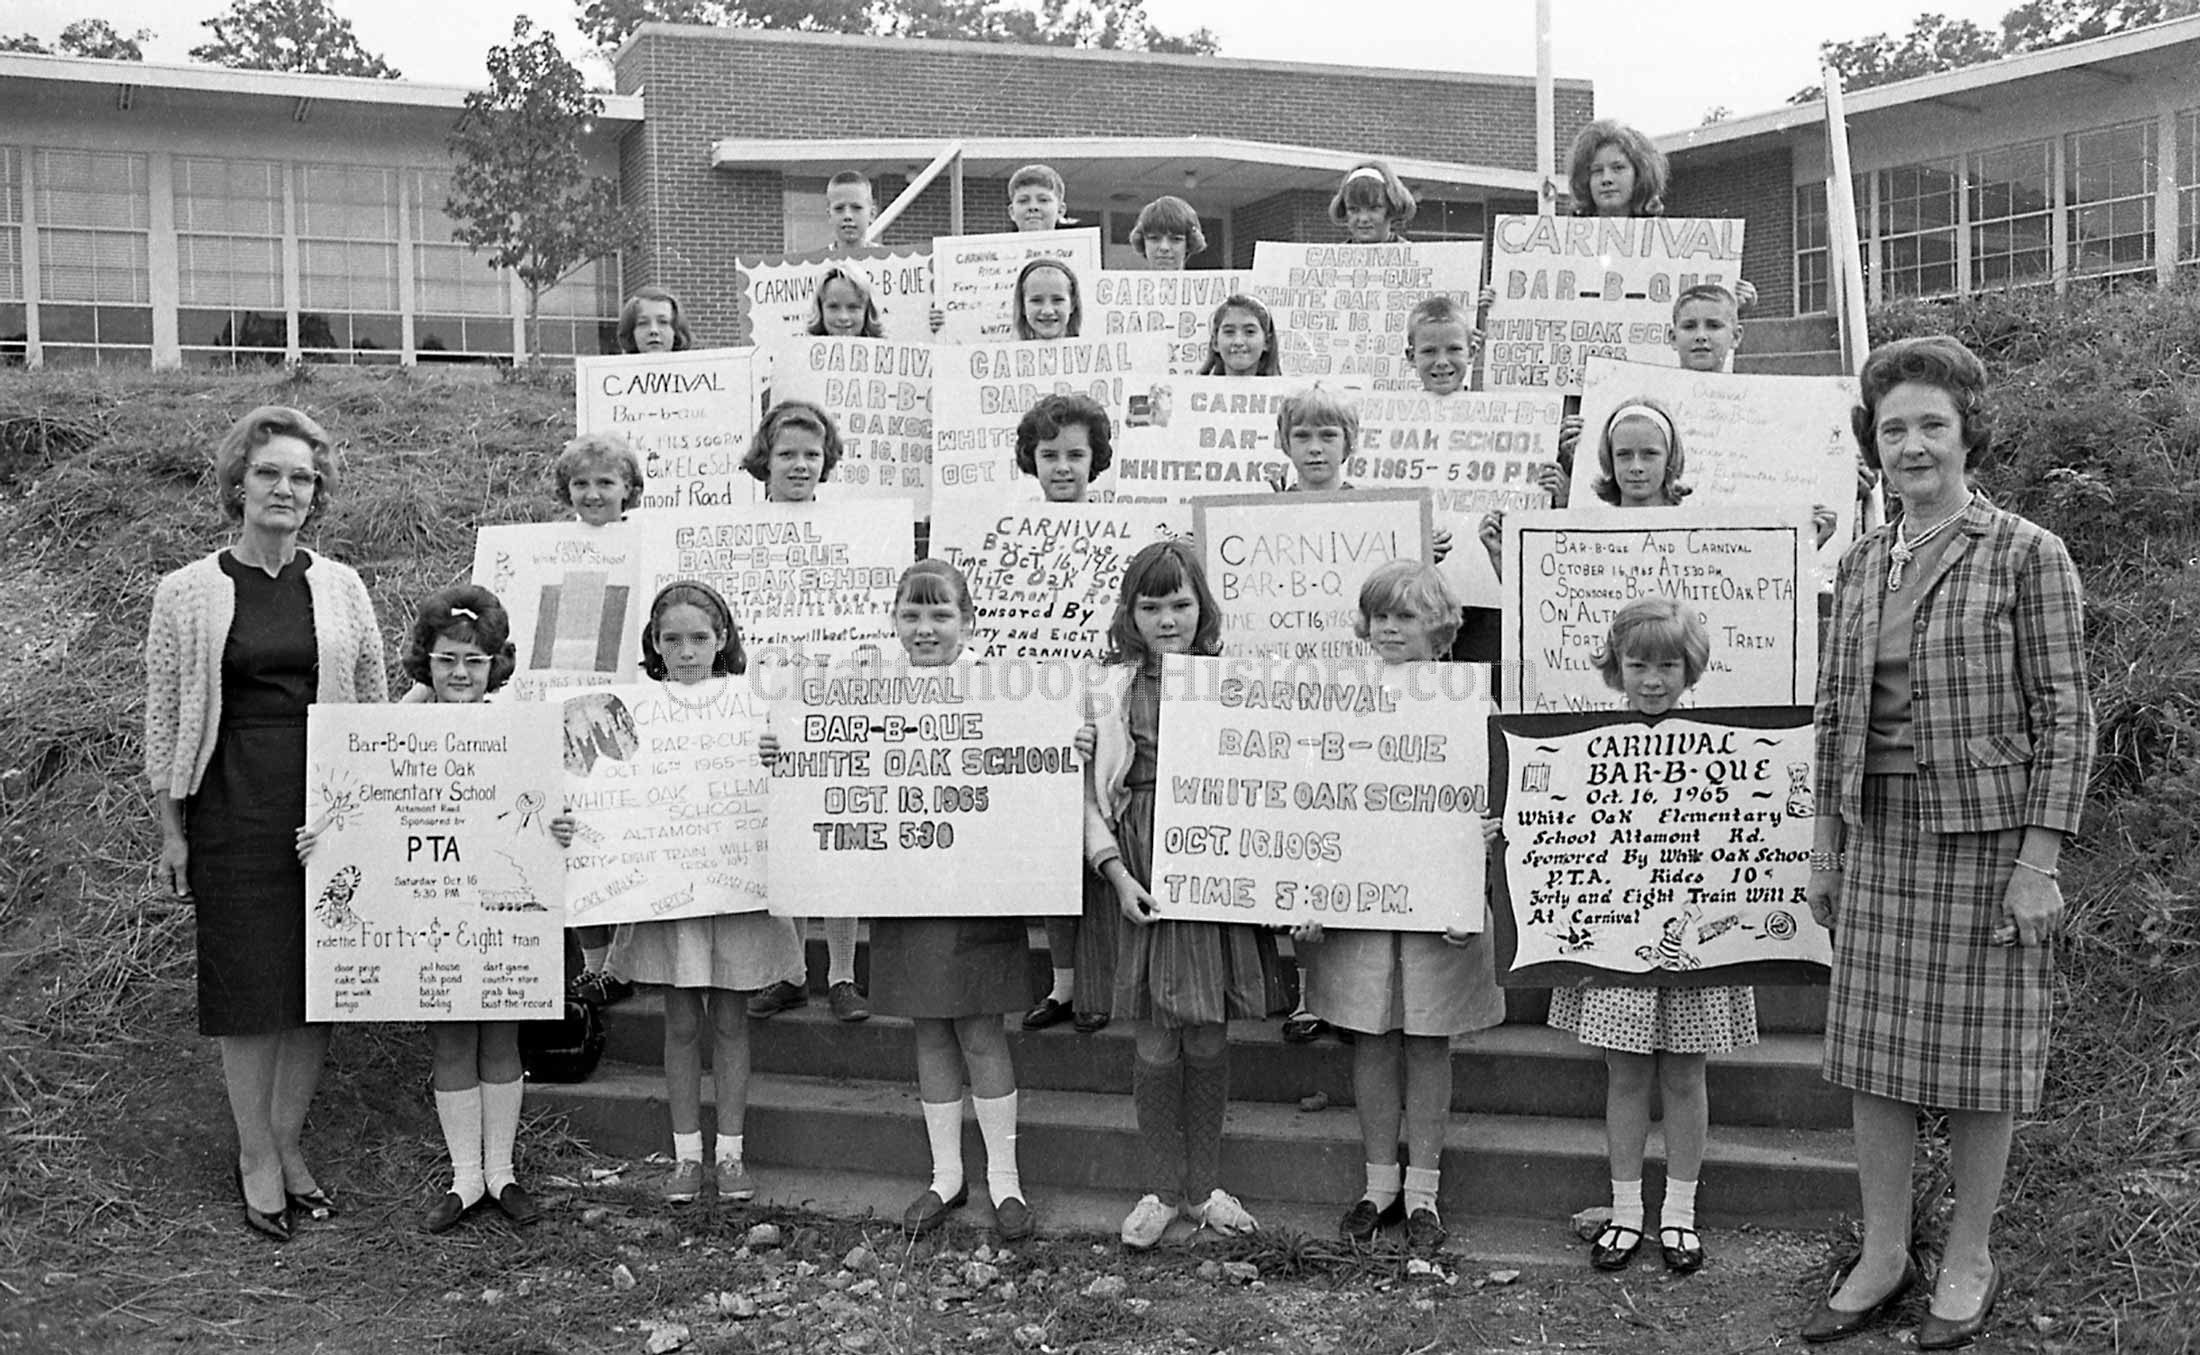 CARNIVAL
BAR-B-QUE
WHITE OAK SC
OCT. 16 1965
TIME 5:3
CARNIVAL
BAR-B-QUE
WHITE OAK SCHOOL
OCT. 16, 19
TIME - 5:30
FOOD AND F
CARNIVAL AND BAR-B-QUE
RIDE
WHITE
CARNIVAL BAR-B-QUE
CARNIVAL
BAR-B-
CARNIVAL
Bar-b-que
1965 5:00 PM
Oak Ele School
mont Road
CARNIV
BAR-B-Q
OAK SC
16, 196
:30 P.M.
CARNIVAL
BAR-B-QU
WHITE
OCT 1
CARN
BAR-
WHITE OAK S
CARNIVAL BAR-B-Q
TE OAK SCHOOL
16 1965 - 5:30 P.M.
VERMON
Carnival
Bar-B-Que
Elementary School
Road
CARNIVAL
White Oak School
Oct 16, 1965
CARNIVAL
BAR-B-QUE
WHITE OAK SCHOOL
ALTAMONT Road
WHITE OAK P.T.
train will be at Carnival
CARNIVAL
Bar-B-Que
Time Oct, 16, 1965
White Oak Sc
ALTAMONT Ro
Sponsored By
Forty and Eight
AT CARNIVAL
CARNIVAL
BAR-B-Q
TIME OCT 16, 1965
PLACE - WHITE OAK ELEMENTA
BAR-B-QUE AND CARNIVAL
OCTOBER 16, 1965 AT 5:30 PM
SPONSORED BY - WHITE OAK PTA
ON ALTAMO
FORTY TRAIN
WILL
AT WHITE
Bar-B-Que Carnival
White Oak
Elementary School
Altamont Road
Sponsored by
PTA
Saturday Oct. 16
5:30 PM
ride the Forty-&-Eight train
door prize jail house dart game
cake walk fish pond country store
pie walk bazaar grab bag
bingo bowling bust-the-record
CARNIVAL
BAR-B-CUE
OCT 16TH 1965 - 5
WHITE OAK ELEM
SCHOOL
ALTAMONT ROA
FORTY & EIGHT TRAIN WILL BE
(RIDES 10¢)
CAKE WALKS
DARTS! GRAB BAG
CARNIVAL
BAR-B-QUE
WHITE OAK SCHOOL
OCT. 16, 1965
TIME 5:30
CARNIVAL
BAR-B-QUE
WHITE OAK SCHOOL
OCT. 16, 1965
TIME 5:30 P.M.
~ CARNIVAL ~
BAR-B-QUE
~ Oct. 16, 1965 ~
White Oak Elementary
School Altamont Rd.
Sponsored By White Oak School
P.T.A. Rides 10¢
Forty and Eight Train Will B
At Carnival
© ChattanoogaHistory.com